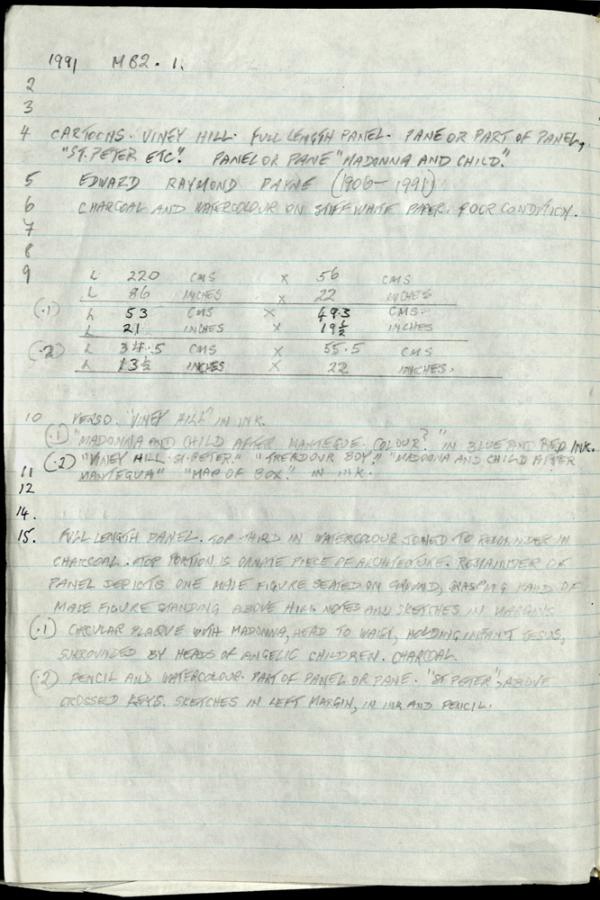 1991 MB2.1.
2
3
4 CARTOONS. VINEY HILL. FULL LENGTH PANEL. PANE OR PART OF PANEL,
"ST. PETER ETC". PANEL OR PANE "MADONNA AND CHILD."
5 EDWARD RAYMOND PAYNE (1906-1991)
6 CHARCOAL AND WATERCOLOUR ON STIFF WHITE PAPER. POOR CONDITION.
7
8
9 L 220 CMS X 56 CMS
L 86 INCHES X 22 INCHES
(.1) L 53 CMS X 49.3 CMS.
L 21 INCHES X 19½ INCHES
(.2) L 34.5 CMS X 55.5 CMS
L 13½ INCHES X 22 INCHES.
10 VERSO. "VINEY HILL" IN INK.
(.1) "MADONNA AND CHILD AFTER MANTEGUE. COLOUR?" IN BLUE AND RED INK.
(.2) "VINEY HILL. ST. PETER." BOY." "MADONNA AND CHILD AFTER
11 MANTEGUA" "MAP OF BOX." IN INK.
12
14.
15. FULL LENGTH PANEL. TOP THIRD IN WATERCOLOUR JOINED TO REMAINDER IN
CHARCOAL. TOP PORTION IS ORNATE PIECE OF ARCHITECTURE. REMAINDER OF
PANEL DEPICTS ONE MALE FIGURE SEATED ON GROUND, GRASPING HAND OF
MALE FIGURE STANDING ABOVE HIM. NOTES AND SKETCHES IN MARGINS
(.1) CIRCULAR PLAQUE WITH MADONNA, HEAD TO WAIST, HOLDING INFANT JESUS,
SURROUNDED BY HEADS OF ANGELIC CHILDREN. CHARCOAL.
(.2) PENCIL AND WATERCOLOUR. PART OF PANEL OR PANE. "ST PETER", ABOVE
CROSSED KEYS. SKETCHES IN LEFT MARGIN, IN INK AND PENCIL.